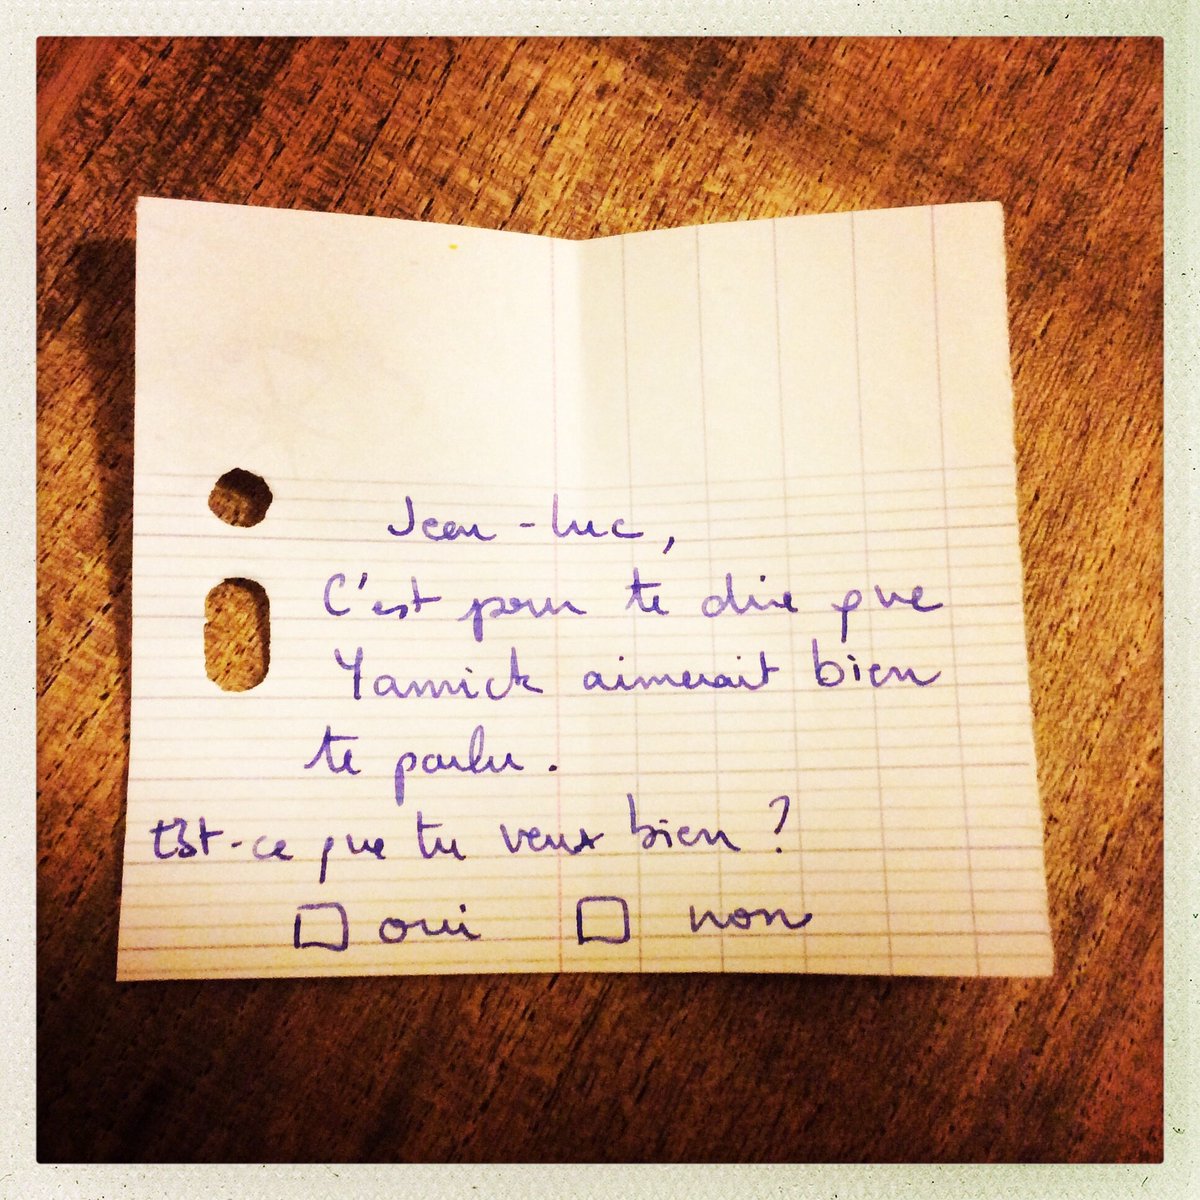 Jean-Luc,
C'est pour te dire que
Yannick aimerait bien
te parler.
Est-ce que tu veux bien ?
□ oui □ non